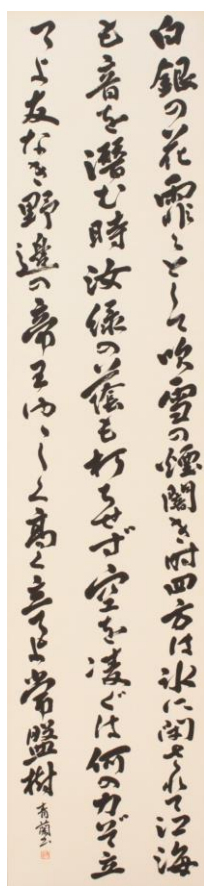 白銀の花霏々として吹雪の煙闇き时四方は氷に閉されて江海
も音を潜む時汝緑の蔭も朽ちせず空を凌ぐは何の力ぞ立
てよ友なき野邊の帝王ゆゝしく高く立てよ常盤樹